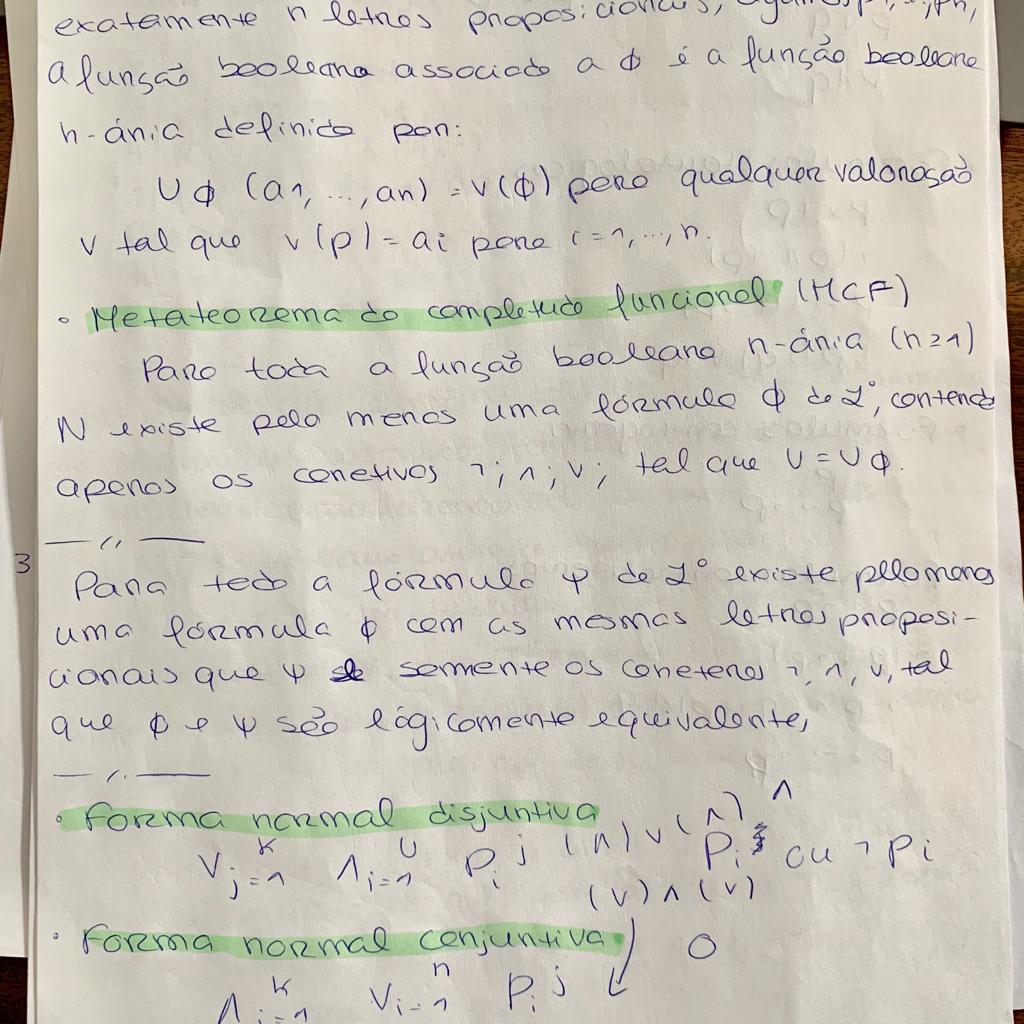 exatamente n letras proposicionais,
a função booleana associada a ϕ é a função booleana
n-ária definida por:
U ϕ (a1, ..., an) = v(ϕ) para qualquer valoração
v tal que v(p) = ai para i=1,...,n.
• Metateorema da completude funcional (MCF)
Para toda a função booleana n-ária (n≥1)
N existe pelo menos uma fórmula ϕ de L°, contendo
apenas os conetivos ¬; ∧; ∨; tal que U = U ϕ.
— // —
3
Para toda a fórmula ψ de L° existe pelo menos
uma fórmula ϕ com as mesmas letras proposi-
cionais que ψ somente os conetores ¬, ∧, ∨, tal
que ϕ e ψ são lógicamente equivalente,
— // —
• Forma normal disjuntiva (∧) ∨ (∧) 1
∨ j=1 k ∧ i=1 U Pi j Pi ou ¬ Pi
(∨) ∧ (∨)
• Forma normal conjuntiva 0
∧ i=1 k ∨ i=1 n Pi j